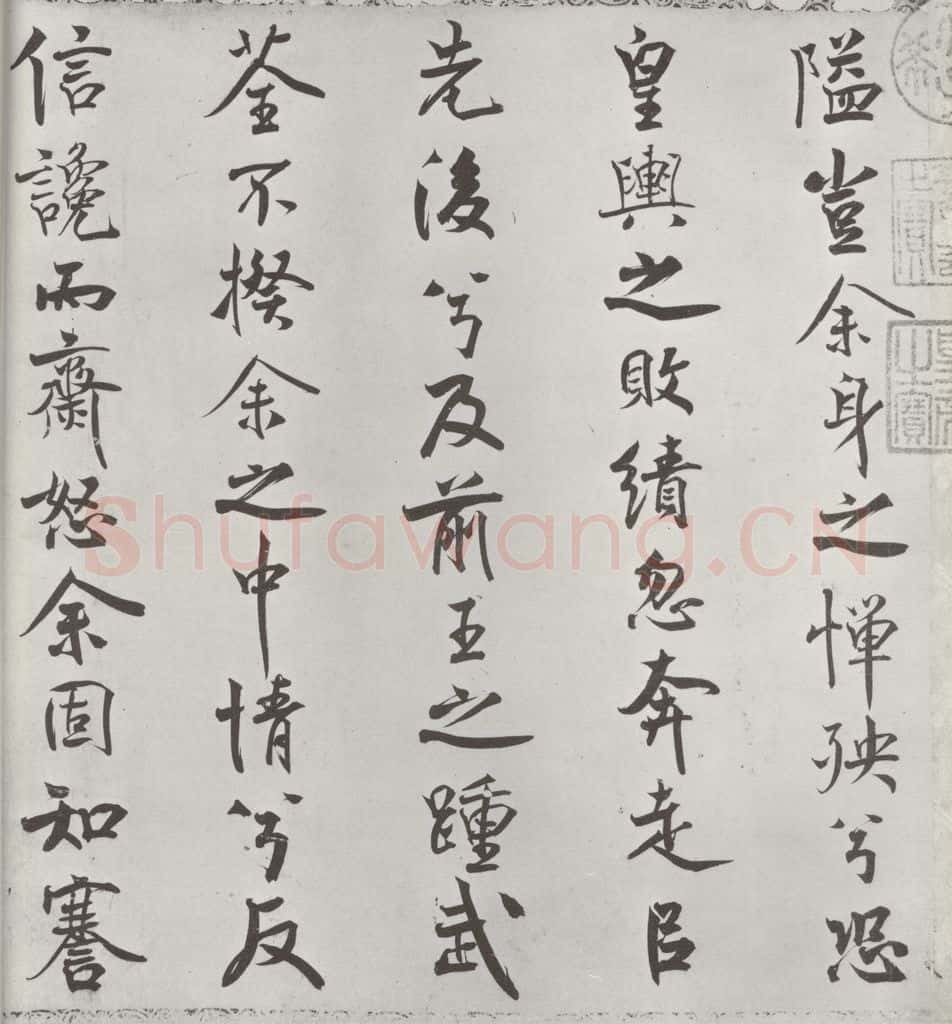 隘豈余身之憚殃兮恐
皇輿之敗績忽奔走㠯
先後兮及前王之踵武
荃不揆余之中情兮反
信讒而齋怒余固知謇
Shufawang.CN